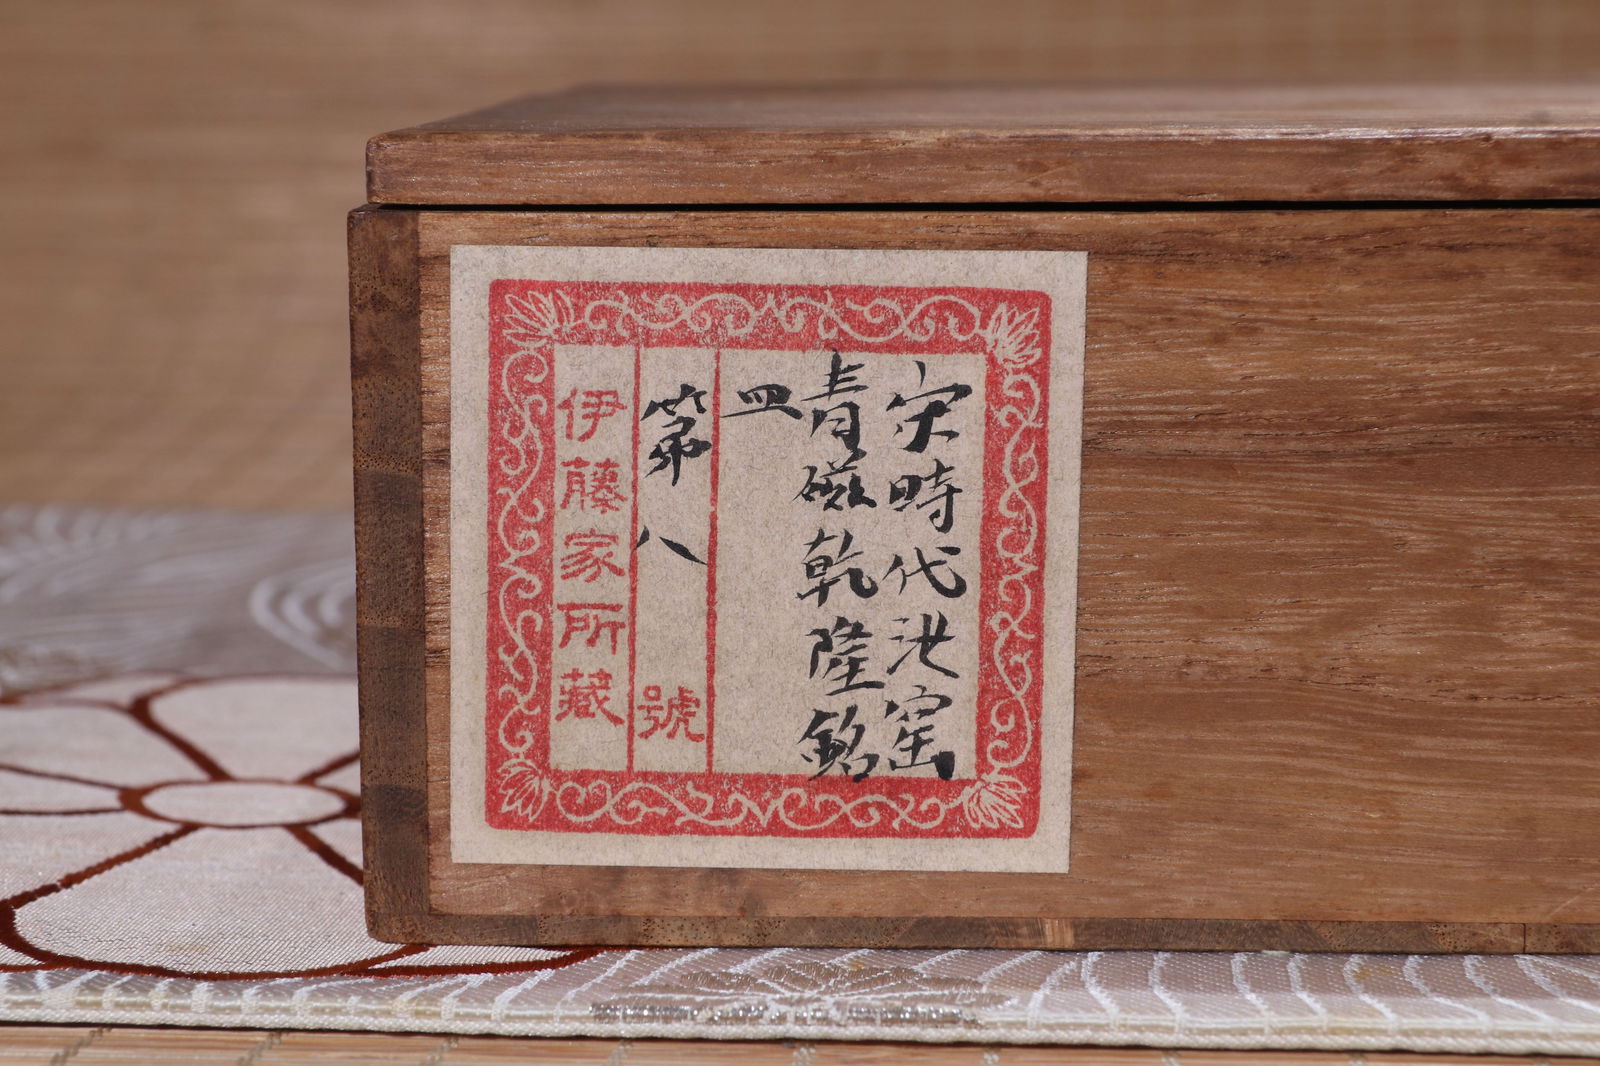 宋時代汝窯
青磁乾隆銘
皿
第八號
伊藤家所藏